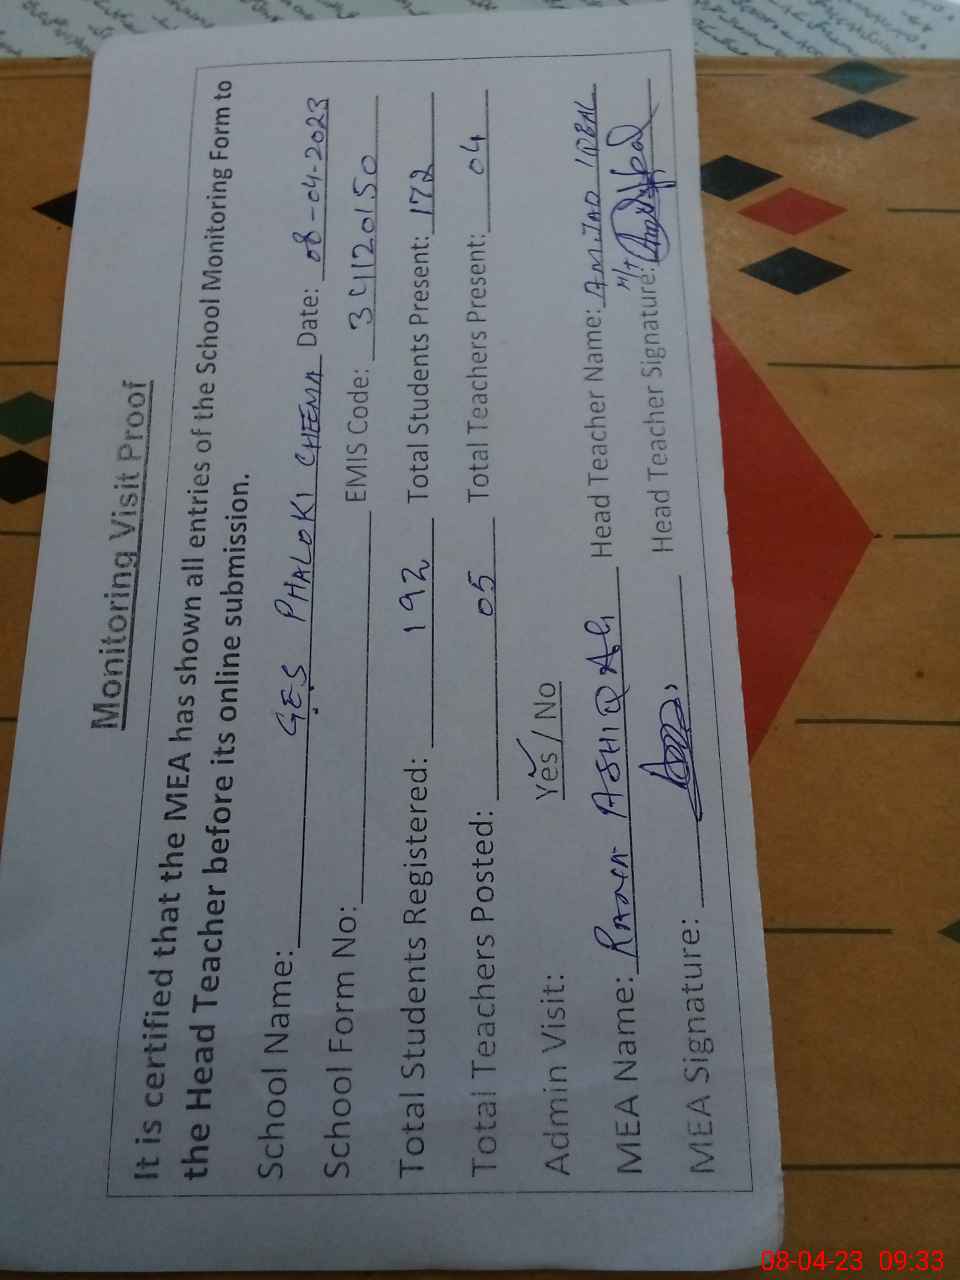 Monitoring Visit Proof
It is certified that the MEA has shown all entries of the School Monitoring Form to
the Head Teacher before its online submission.
School Name: G.E.S PHALOKI CHEEMA Date: 08-04-2023
School Form No: EMIS Code: 34120150
Total Students Registered: 192 Total Students Present: 172
Total Teachers Posted: 05 Total Teachers Present: 04
Admin Visit: Yes / No
MEA Name: ASHIQ Ali Head Teacher Name: AMJAD IQBAL
MEA Signature: Head Teacher Signature:
08-04-23 09:33